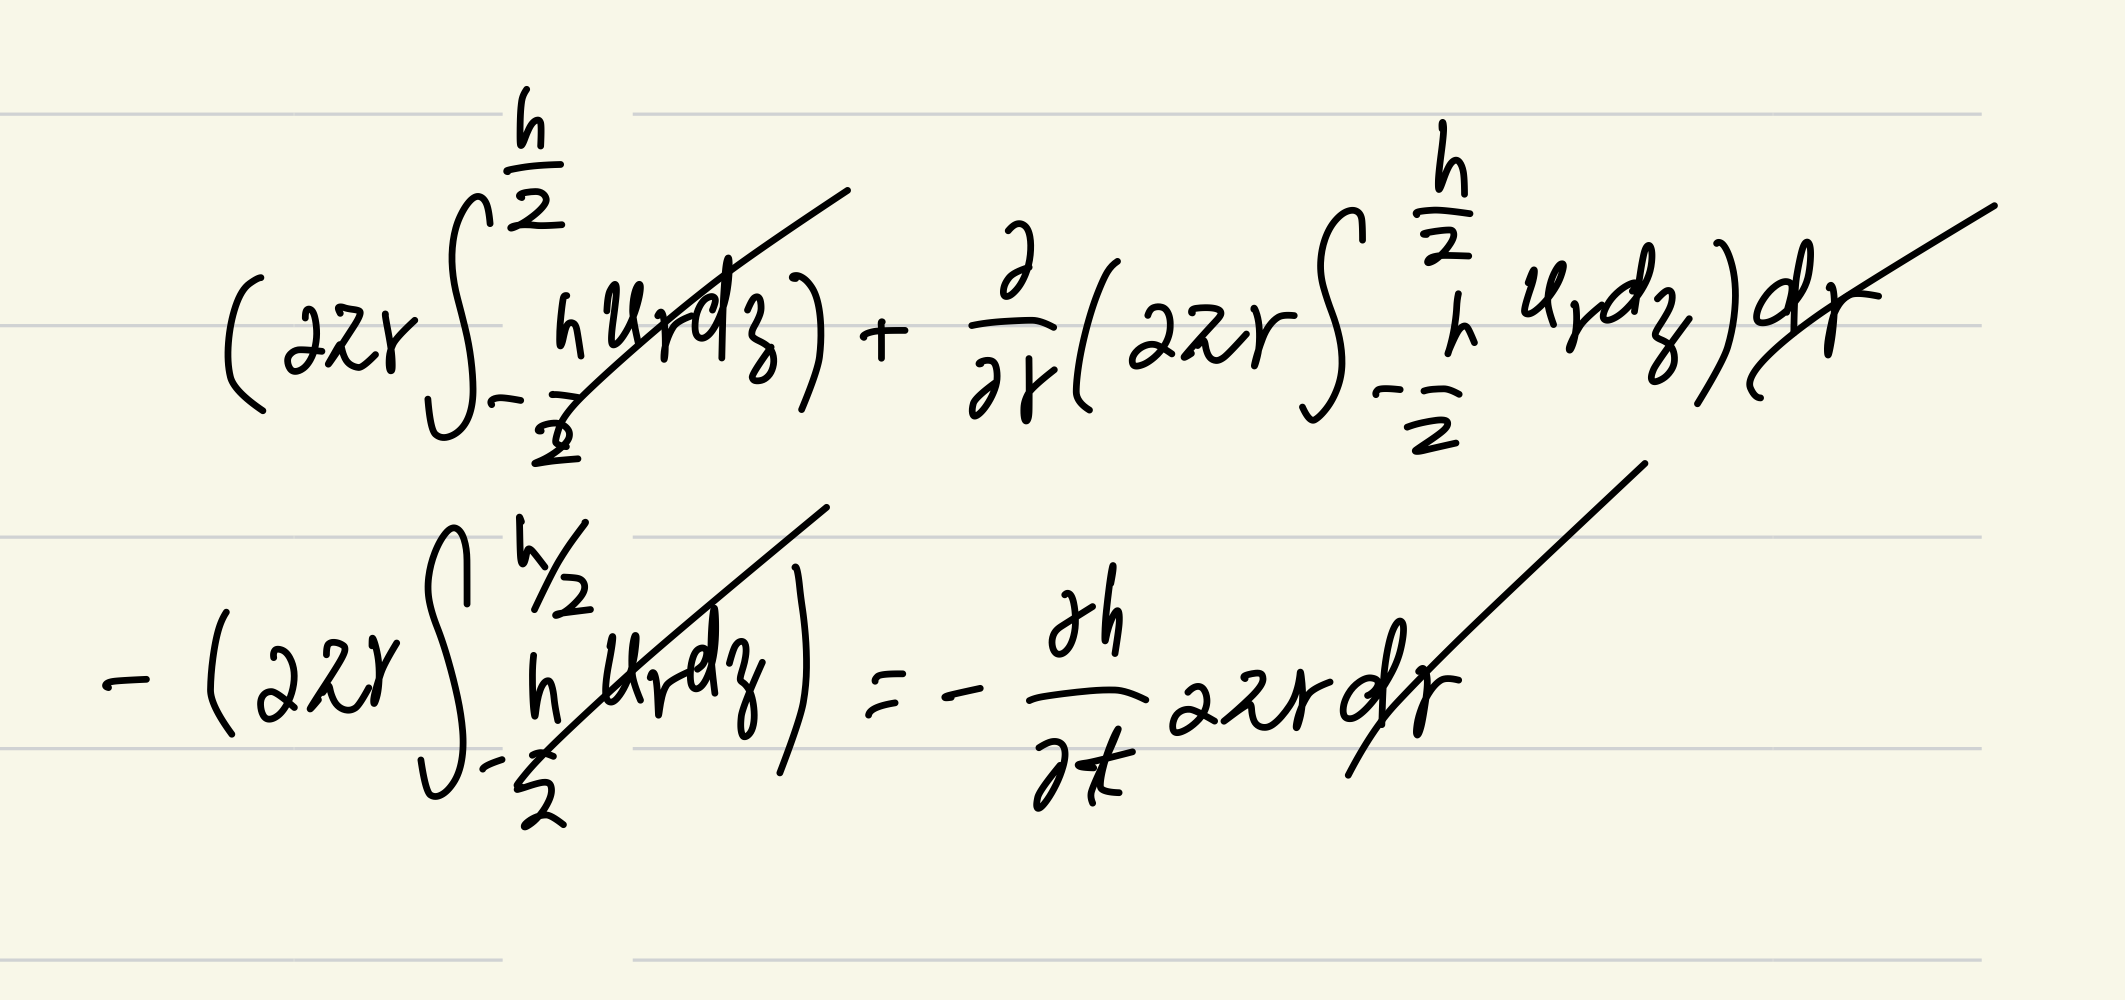 (2πr ∫_{-h/2}^{h/2} u_r dz) + ∂/∂r (2πr ∫_{-h/2}^{h/2} u_r dz) dr
- (2πr ∫_{-h/2}^{h/2} u_r dz) = - ∂h/∂t 2πr dr